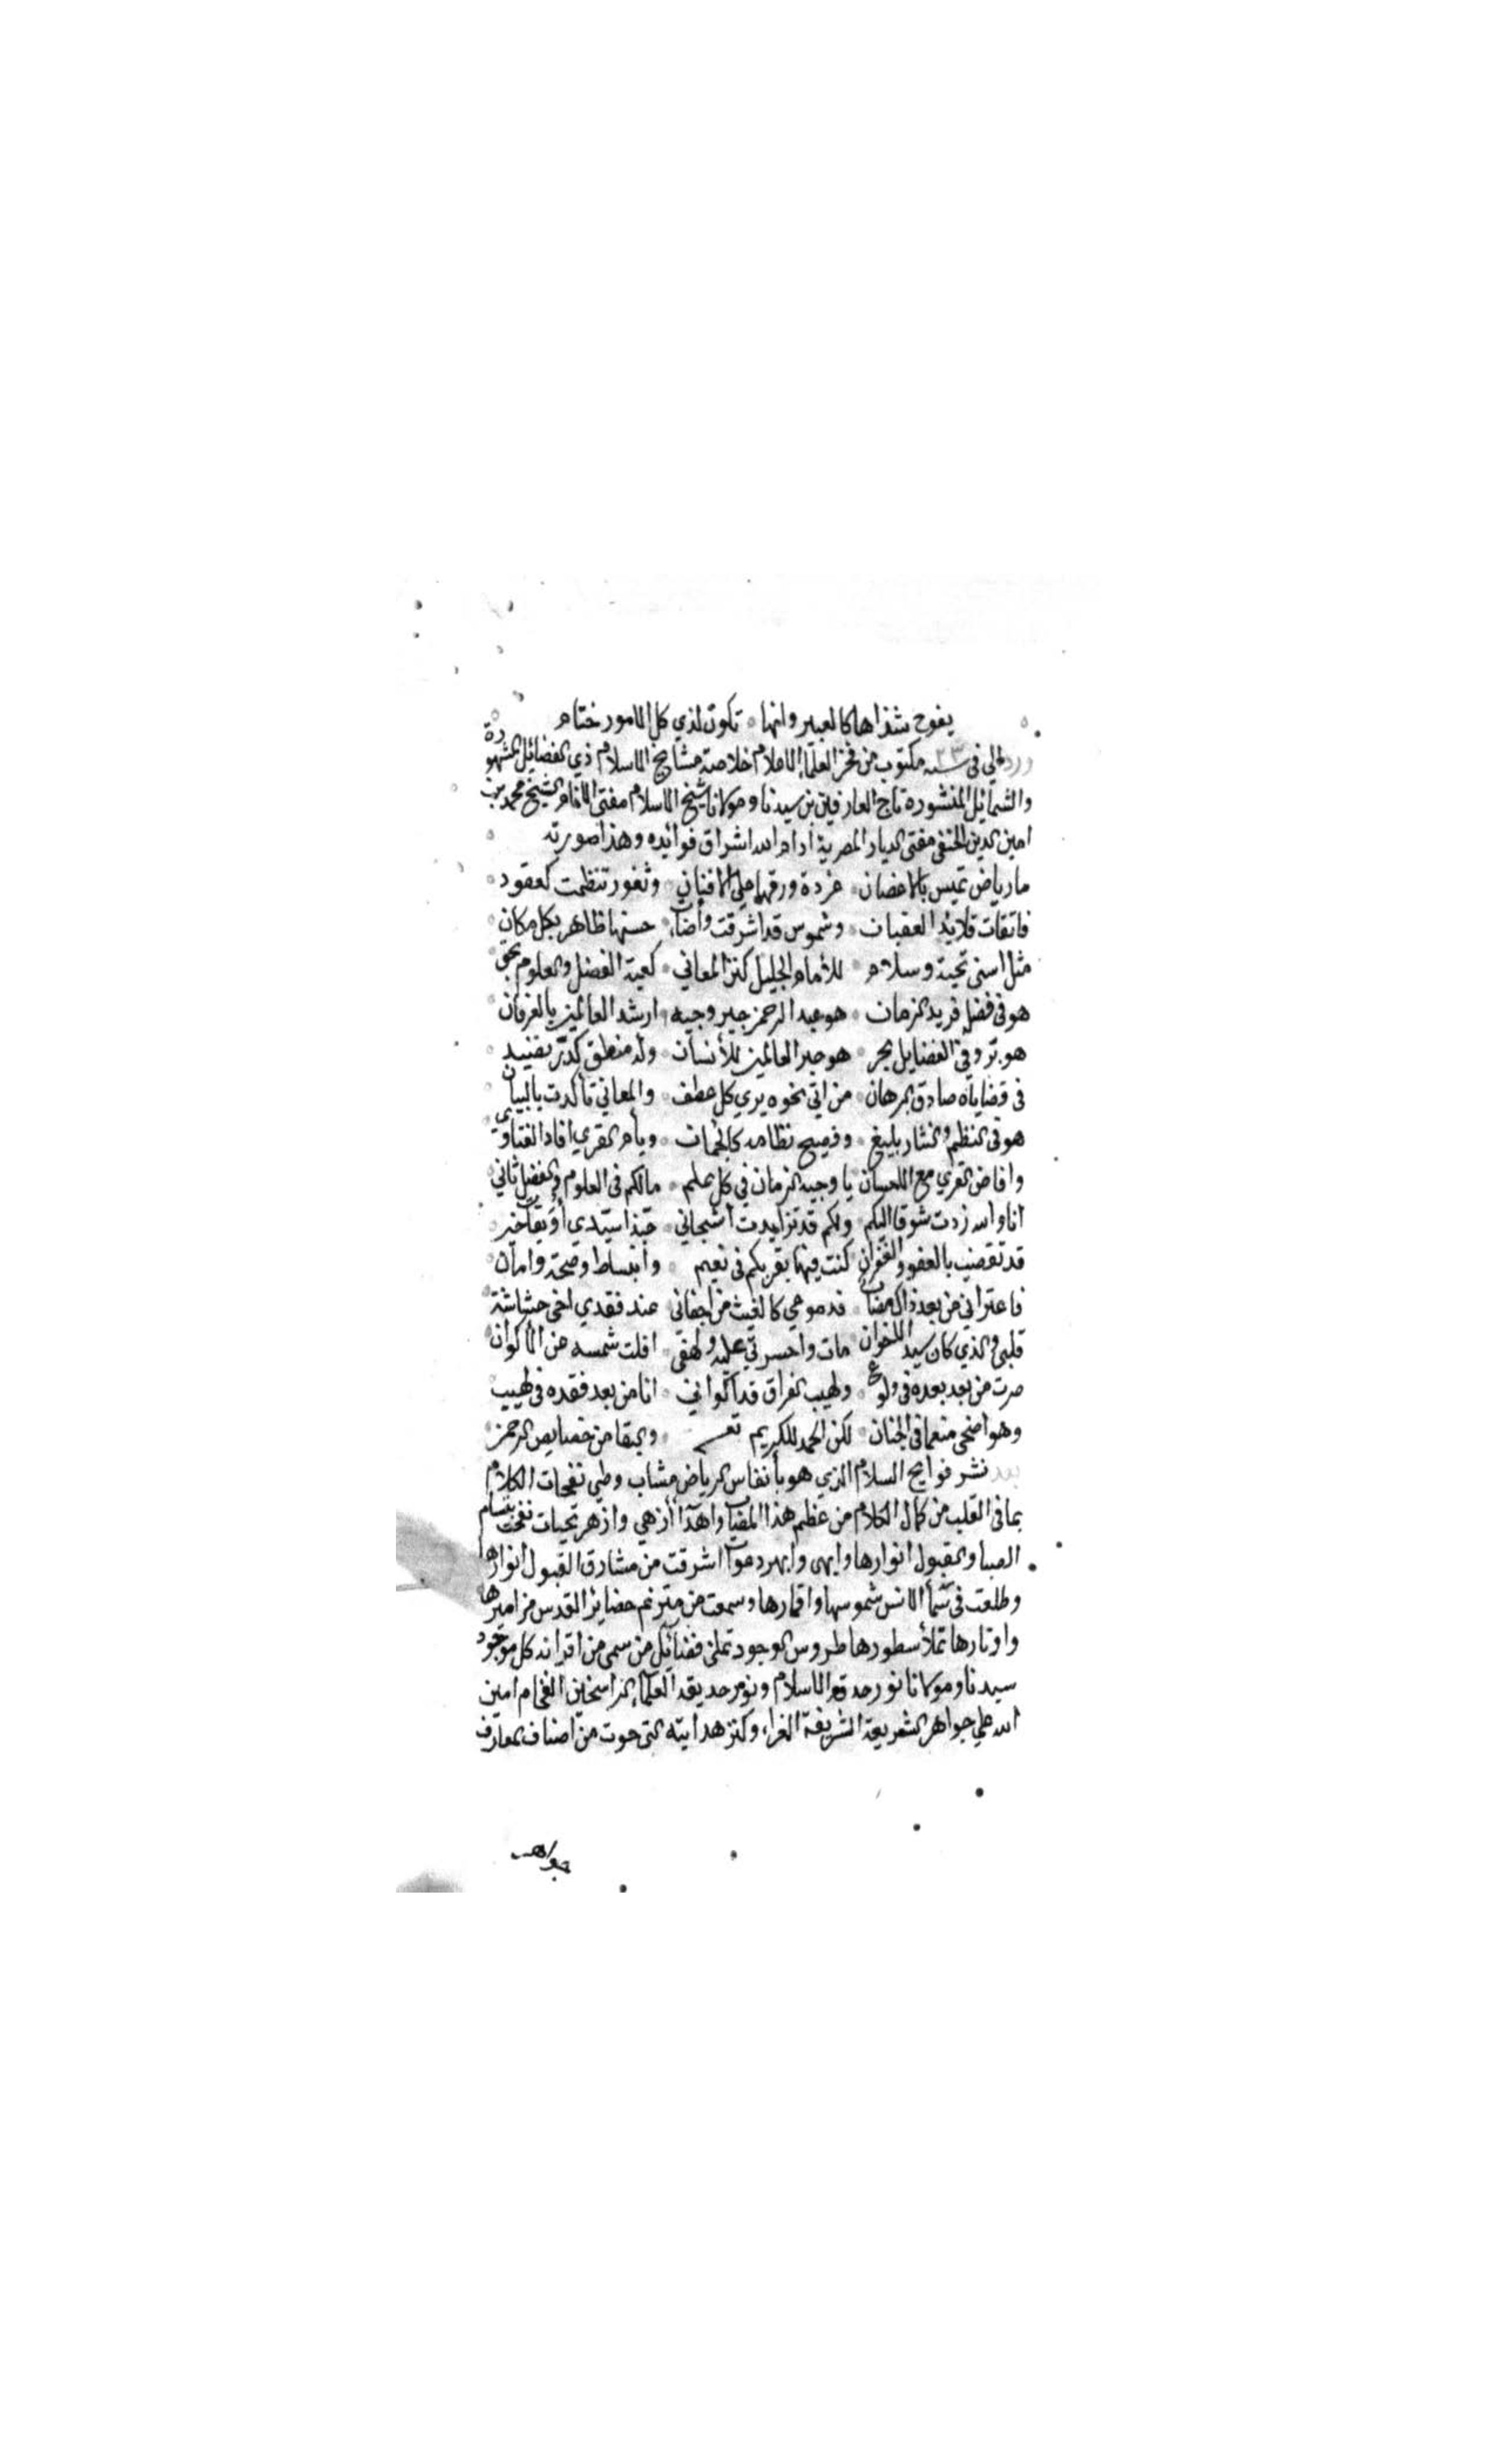 يفوح شذاها كالعبير وانها تكون لذي كل الامور ختام
ورد الي في سنة ٢٣ مكتوب من فخر العلماء الاعلام خلاصة مشايخ الاسلام ذي الفضائل المشهودة
والشمائل المنشورة تاج العارفين بن سيدنا ومولانا شيخ الاسلام مفتى الانام الشيخ محمد بن
امين الدين الحنفي مفتى الديار المصرية ادام الله اشراق فوائده وهذا صورته
ما رياض تميس بالاغصان غردة ورقها على الافنان وثغور تنظمت كعقود
فائقات قلائد العقيان وشموس قد اشرقت وأضات حسنها ظاهر بكل مكان
مثل اسنى تحية وسلام للأمام الجليل كنز المعاني كعبة الفضل والعلوم بحق
هو في فضل فريد الزمان هو عبد الرحمن حبر وجيه ارشد العالمين بالعرفان
هو بر وفي الفضايل بحر هو حبر العالمين للأنسان وله منطق كدر نضيد
في قضاياه صادق البرهان من اتى نحوه يرى كل عطف والمعاني تأكدت بالبيان
هو في النظم والنثار بليغ وفصيح نظامه كالجمان وبأم القرى افاد الفتاوى
وافاض القرى مع الاحسان يا وجيه الزمان في كل علم مالكم في العلوم والفضل ثاني
انا والله زدت شوقا اليكم ولكم قد تزايدت أشجاني حبذا سيدي أويقات خير
قد تقضيت بالعفو والغفران كنت فيها بقربكم في نعيم وانبساط وصحة وامان
فاعتراني من بعد ذاك مصاب فدموعي كالغيث من اجفاني عند فقدي اخي حشاشة
قلبي والذي كان سيد الاخوان مات واحسرتي عليه ولهفي افلت شمسه من الأكوان
صرت من بعد بعده في ولوع ولهيب الفراق قد اكواني انا من بعد فقده في لهيب
وهو اضحى منعما في الجنان لكن الحمد للكريم تعـ والبقا من خصايص الرحمن
بعد نشر فوايح السلام الذي هو بأنفاس الرياض مشاب وطي نفحات الكلام
بما في القلب من كمال الكلام من عظم هذا المصاب واهدآ أزهى وازهر تحيات نفحت بنسام
الصبا والقبول انوارها وابهى وابهر دعوات اشرقت من مشارق القبول أنوارها
وطلعت في سمأ الانس شموسها واقمارها وسمعت من مترنم حضائر القدس مزاميرها
واوتارها تملأ سطورها طروس الوجود تملى فضائل من سمى من اقرانه كل موجود
سيدنا ومولانا نور حدقة الاسلام ونور حديقة العلماء الراسخين الفخام امين
الله على جواهر الشريعة الشريفة الغراء وكنز هدايته التي حوت من اصناف المعارف